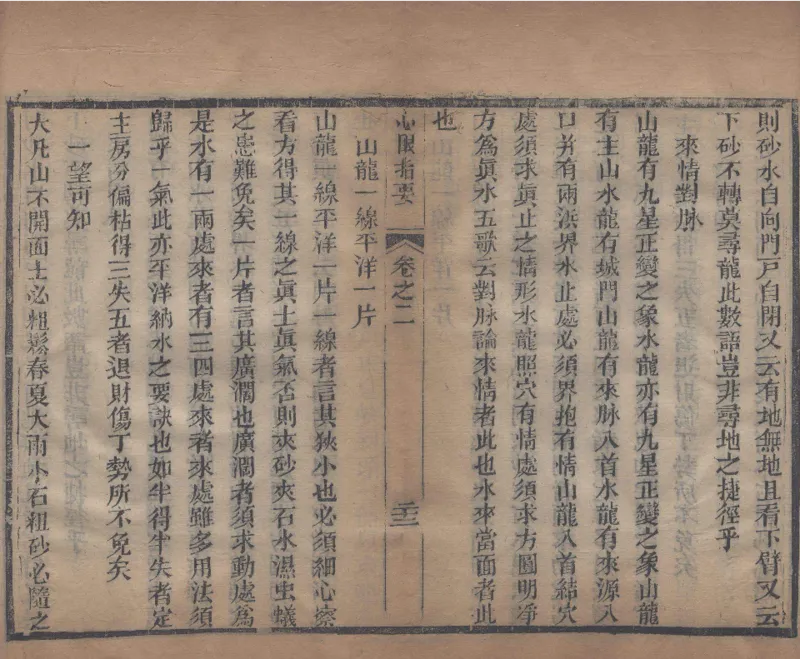 則砂水自向門戸自閉又云有地無地且看下臂又云
下砂不轉莫尋龍此數語豈非尋地之捷徑乎
來情對脉
山龍有九星正變之象水龍亦有九星正變之象山龍
有主山水龍有城門山龍有來脉入首水龍有來源入
口并有兩浜界水止處必須界抱有情山龍入首結穴
處須求真止之情形水龍照穴有情處須求方圓明凈
方爲真水五歌云對脉論來情者此也水來當面者此
也
心眼指要
卷之二
二十三
山龍一線平洋一片
山龍一線平洋一片一線者言其狹小也必須細心察
看方得其一線之真土真氣否則夾砂夾石水濕虫蟻
之患難免矣一片者言其廣濶也廣濶者須求動處爲
是水有一兩處來者有三四處來者來處雖多用法須
歸乎一氣此亦平洋納水之要訣也如半得半失者定
主房分偏枯得三失五者退財傷丁勢所不免矣
一望可知
大凡山不開面土必粗鬆春夏大雨水石粗砂必隨之